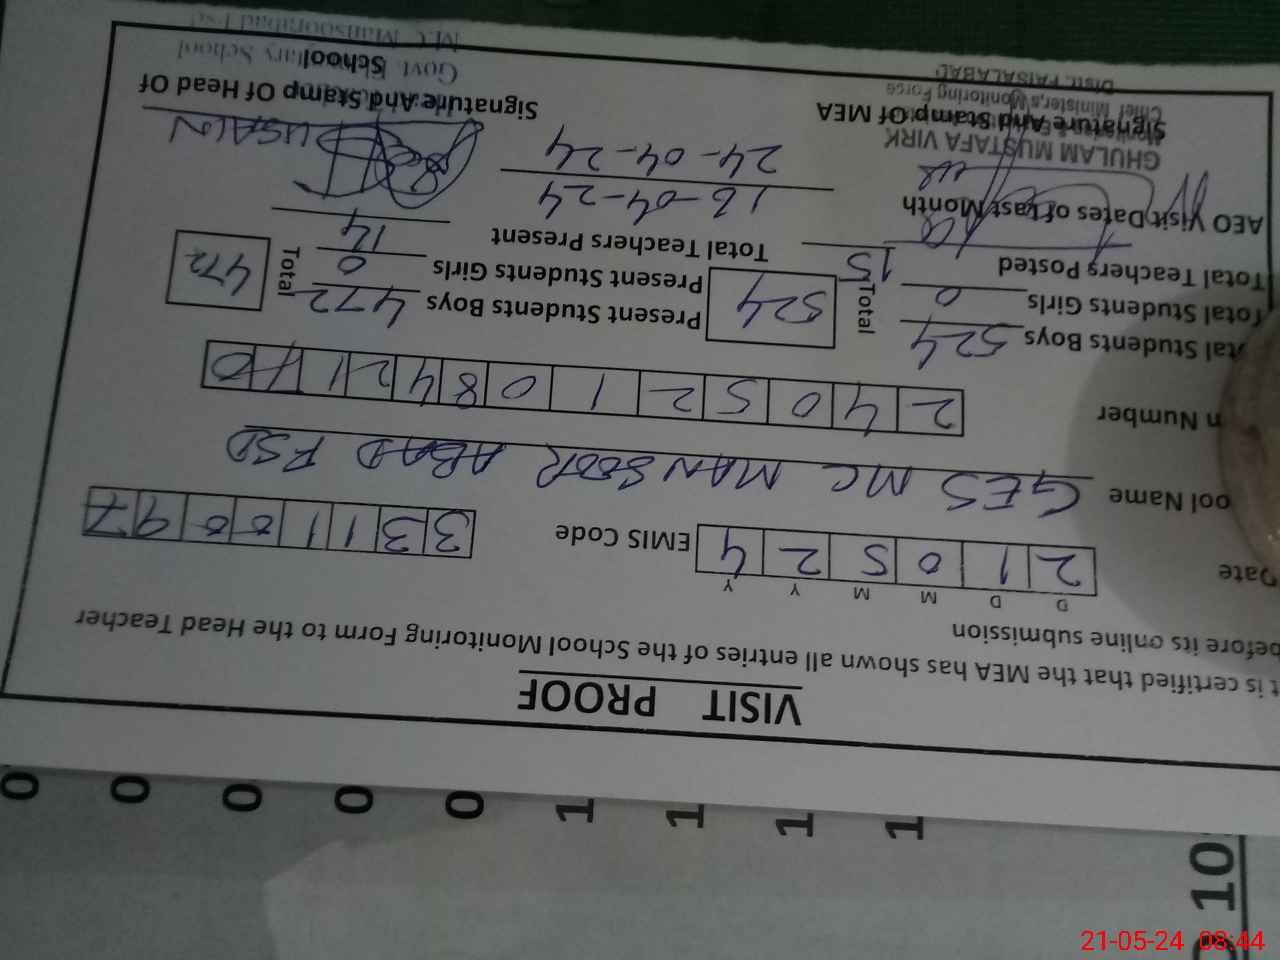 VISIT PROOF
t is certified that the MEA has shown all entries of the School Monitoring Form to the Head Teacher
before its online submission
D D M M Y Y
Date 2 1 0 5 2 4 EMIS Code 3 3 1 1 0 0 9 7
ool Name GES MC MANSOOR ABAD FSD
n Number 2 4 0 5 2 1 0 8 4 2 1
tal Students Boys 524 Total 524 Present Students Boys 472 Total 472
Total Students Girls 0 Present Students Girls 0
Total Teachers Posted 15 Total Teachers Present 14
AEO Visit Dates of Last Month 16-04-24
24-04-24
GHULAM MUSTAFA VIRK
Signature And Stamp Of MEA Signature And Stamp Of Head Of
School
Chief Minister,s Monitoring Force
Distt. FAISALABAD
Govt.
School
M.C Mansoorabad Fsd
0 0 0 0 0 1 1 1 1
10
21-05-24 08:44